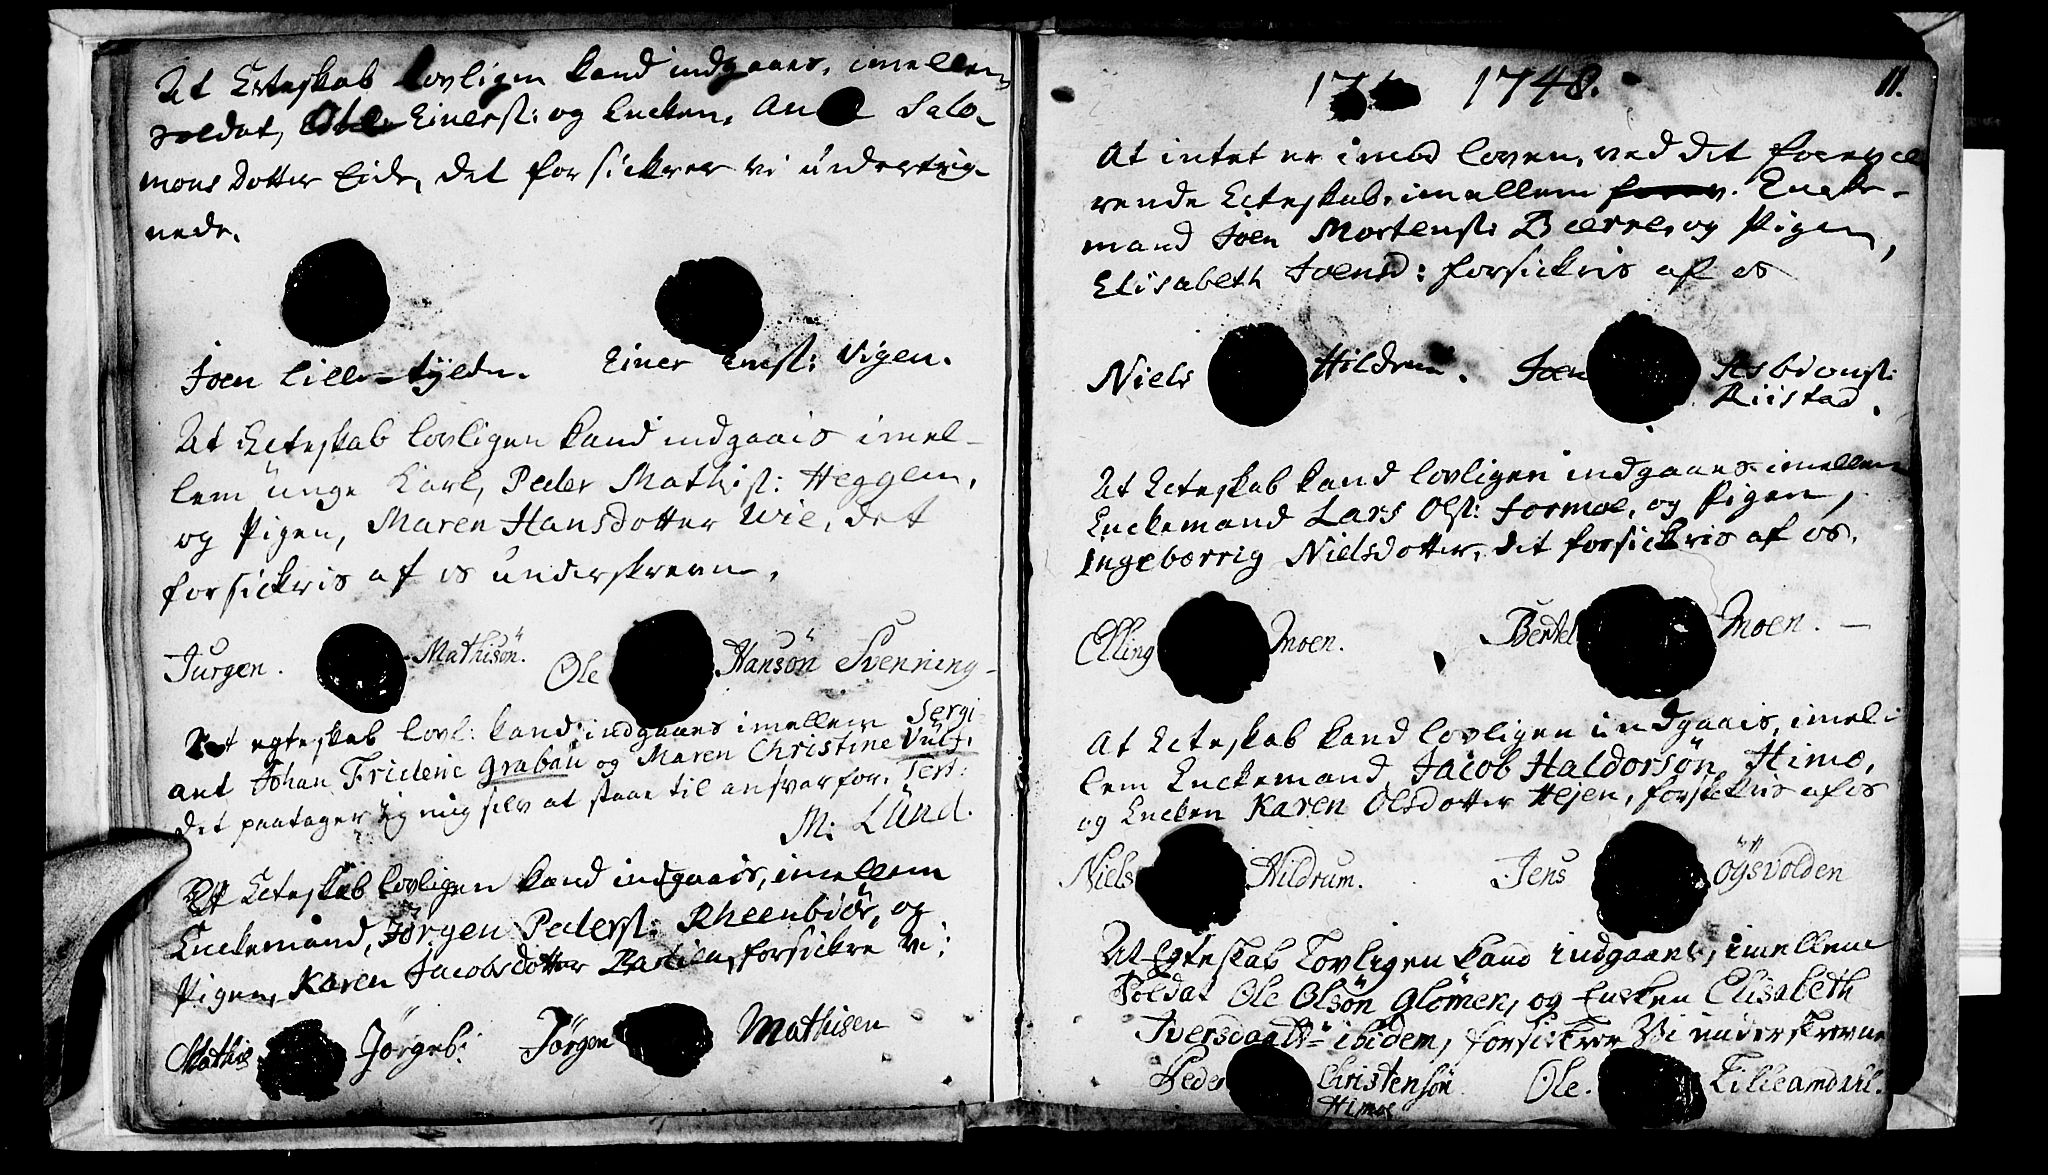 At Ecteskab lovligen kand indgaaes, imellem
Soldat, Einerst: og Encken, An Salo-
mons Dotter Eide, det forsickrer vi underteg-
nede.
Joen Lille-fylden. Einer Enst: Vigen.
At Ecteskab lovligen kand indgaais imel-
lem unge Karl, Peder Mathist: Heggem,
og Pigen, Maren Hansdotter Wie, det
forsickris af os underskrevne,
Jurgen. Mathisön. Ole Hansön Svenning-
At egteskab lovl: kand indgaaes imellem Sergi-
ant Johan Frideric Grabau og Maren Christine Vulf,
det paatager jeg mig selv at staae til ansvar for. Test:
M: Lünd.
At Ecteskab lovligen kand indgaais, imellem
Enckemand, Jörgen Pederst: Rheenbiör, og
Pigen, Karen Jacobsdotter forsickre vi:
Mathis Jörgeb: Jörgen Mathisen
1748. 11.
At intet er imod loven, ved det forevæ
rende Ecteskab, imellem Encke-
mand Joen Mortenst: Bierre, og Pigen,
Elisabeth Joensd: forsickris af os
Niels Hildrum. Joen Asbionst:
Riistad.
At Ecteskab kand lovligen indgaaes imellem
Enckemand Lars Olst: Formoe, og Pigen,
Ingeborrig Nielsdotter, det forsickris af os.
Elling Moen. Bertel Moen. -
At Ecteskab kand lovligen indgaais, imel-
lem Enckemand, Jacob Haldorsön Himo,
og Encken Karen Olsdotter Hejen, forsickris af os
Niels Hildrum. Jens Öÿsvolden
At Egteskab Lovligen kand indgaaes, imellem
Soldat Ole Olsön Glömen, og Encken Elisabeth
Iversdaatt: ibidem, forsickrer Vi underskrevne
Peder Christensön Ole. Lilleamdahl.
Himoe